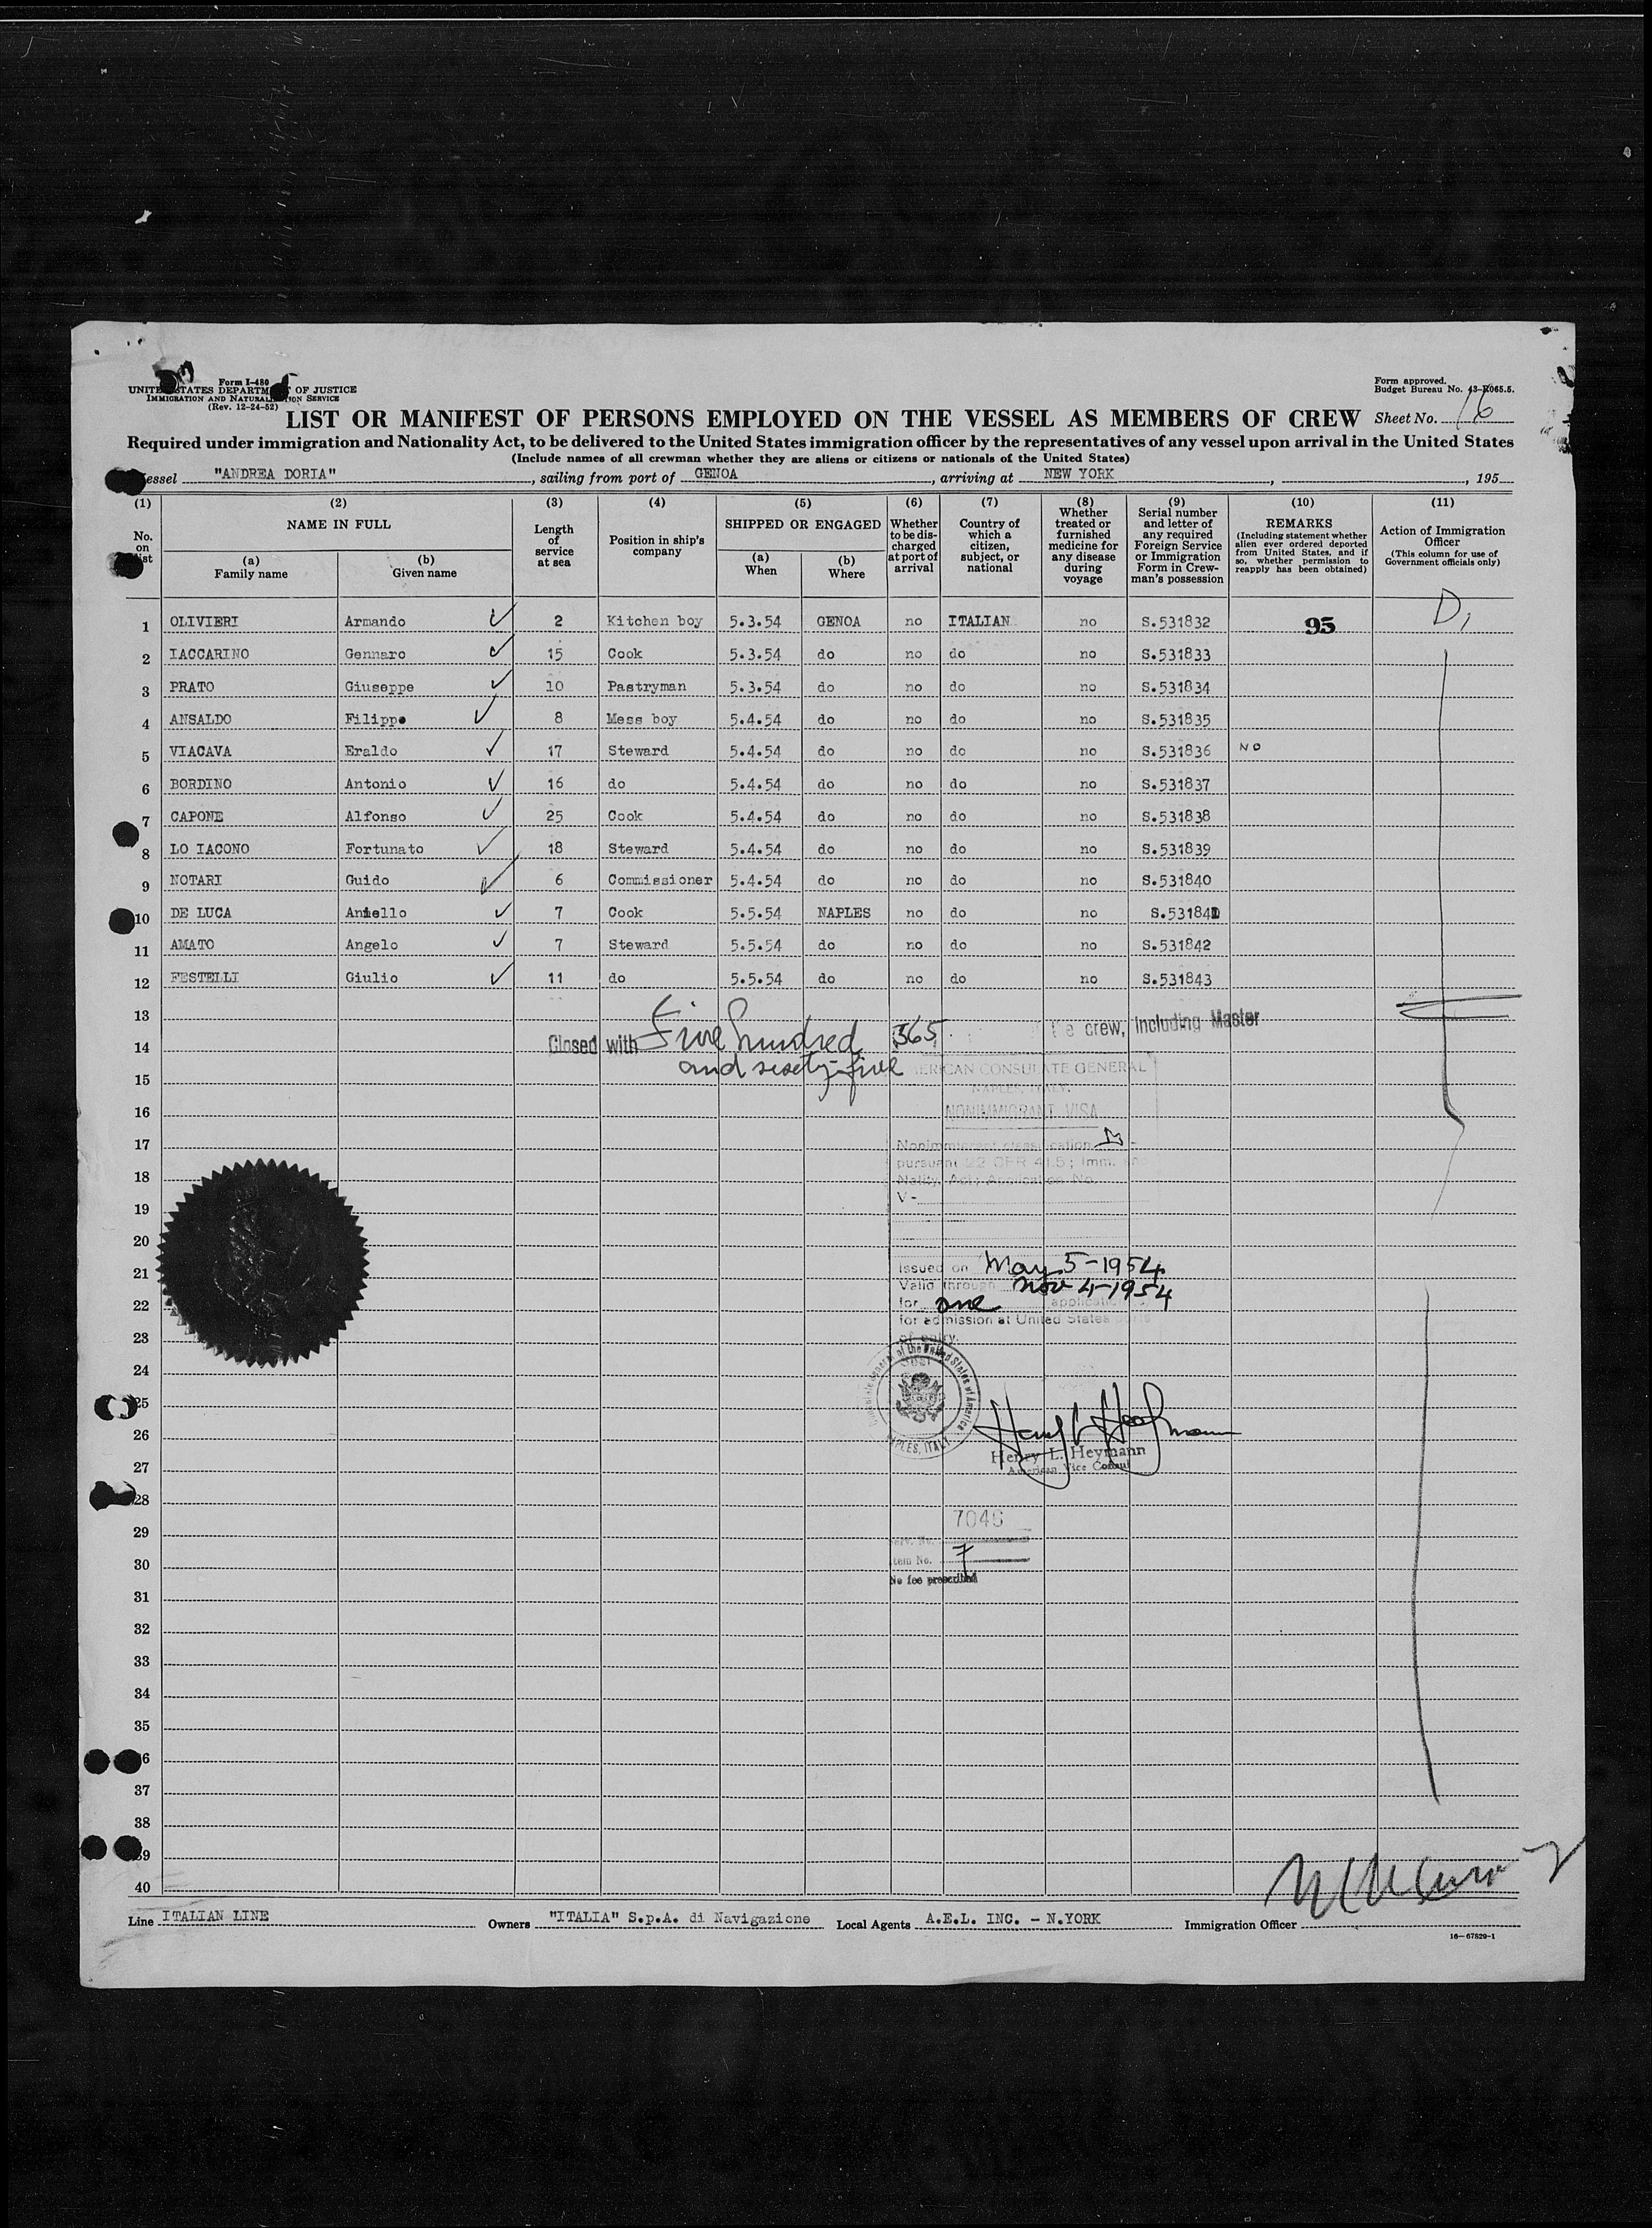 Form I-480
UNITED STATES DEPARTMENT OF JUSTICE
IMMIGRATION AND NATURALIZATION SERVICE
(Rev. 12-24-52)
Form approved.
Budget Bureau No. 43-R065.5.
LIST OR MANIFEST OF PERSONS EMPLOYED ON THE VESSEL AS MEMBERS OF CREW Sheet No. 16
Required under immigration and Nationality Act, to be delivered to the United States immigration officer by the representatives of any vessel upon arrival in the United States
(Include names of all crewman whether they are aliens or citizens or nationals of the United States)
Vessel "ANDREA DORIA", sailing from port of GENOA, arriving at NEW YORK, , 195
(1) No. on list
(2) NAME IN FULL (a) Family name (b) Given name
(3) Length of service at sea
(4) Position in ship's company
(5) SHIPPED OR ENGAGED (a) When (b) Where
(6) Whether to be discharged at port of arrival
(7) Country of which a citizen, subject, or national
(8) Whether treated or furnished medicine for any disease during voyage
(9) Serial number and letter of any required Foreign Service or Immigration Form in Crewman's possession
(10) REMARKS (Including statement whether alien ever ordered deported from United States, and if so, whether permission to reapply has been obtained)
(11) Action of Immigration Officer (This column for use of Government officials only)
1 OLIVIERI Armando 2 Kitchen boy 5.3.54 GENOA no ITALIAN no S.531832 95 D1
2 IACCARINO Gennaro 15 Cook 5.3.54 do no do no S.531833
3 PRATO Giuseppe 10 Pastryman 5.3.54 do no do no S.531834
4 ANSALDO Filippo 8 Mess boy 5.4.54 do no do no S.531835
5 VIACAVA Eraldo 17 Steward 5.4.54 do no do no S.531836 NO
6 BORDINO Antonio 16 do 5.4.54 do no do no S.531837
7 CAPONE Alfonso 25 Cook 5.4.54 do no do no S.531838
8 LO IACONO Fortunato 18 Steward 5.4.54 do no do no S.531839
9 NOTARI Guido 6 Commissioner 5.4.54 do no do no S.531840
10 DE LUCA Aniello 7 Cook 5.5.54 NAPLES no do no S.531841
11 AMATO Angelo 7 Steward 5.5.54 do no do no S.531842
12 FESTELLI Giulio 11 do 5.5.54 do no do no S.531843
13
14 Closed with Five hundred 565 crew, including Master
and sixty-five
AMERICAN CONSULATE GENERAL
15 NAPLES, ITALY.
16 NONIMMIGRANT VISA
17 Nonimmigrant classification D
pursuant 22 CFR 41.5; Imm. and
18 Natlty. Act; Application No.
V-
19
20
21 Issued on May 5-1954
Valid through Nov 4-1954
22 for one applications
for admission at United States ports
23 of entry.
24
25
NAPLES, ITALY
26
Henry L. Heymann
27 American Vice Consul
28
7046
29 Serv. No.
30 Item No. 7
No fee prescribed
31
32
33
34
35
36
37
38
39
40
Line ITALIAN LINE Owners "ITALIA" S.p.A. di Navigazione Local Agents A.E.L. INC. - N.YORK Immigration Officer
16—67829-1